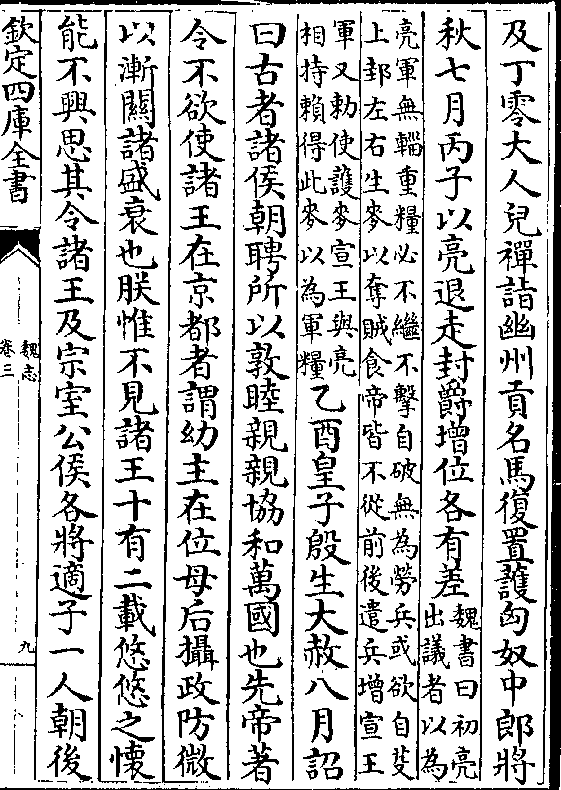 及丁零大人兒禪詣幽州貢名馬復置護匈奴中郎將
秋七月丙子以亮退走封爵增位各有差魏書曰初亮
出議者以為
亮軍無輜重糧必不繼不擊自破無為勞兵或欲自芟
上邽左右生麥以奪賊食帝皆不從前後遣兵增宣王
軍又勅使護麥宣王與亮
相持賴得此麥以為軍糧乙酉皇子殷生大赦八月詔
曰古者諸侯朝聘所以敦睦親親協和萬國也先帝著
令不欲使諸王在京都者謂幼主在位母后攝政防微
以漸關諸盛衰也朕惟不見諸王十有二載悠悠之懷
能不興思其令諸王及宗室公侯各將適子一人朝後
欽定四庫全書
魏志
卷三
九